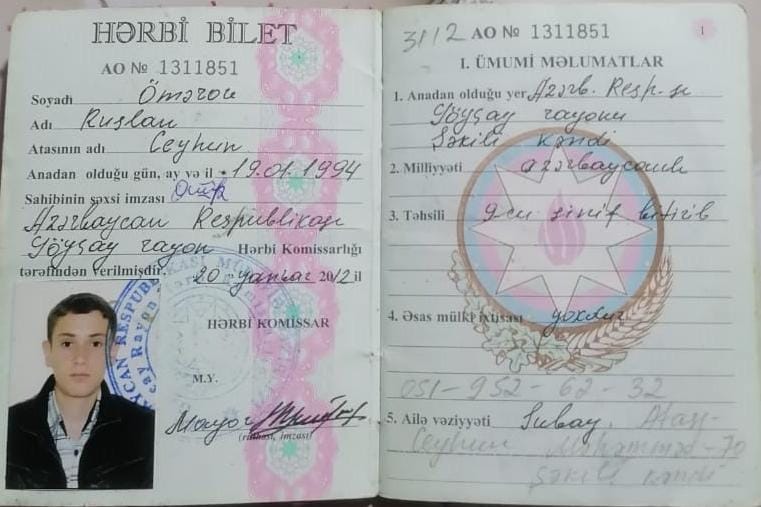 HƏRBİ BİLET
AO № 1311851
Soyadı Ömərov
Adı Ruslan
Atasının adı Ceyhun
Anadan olduğu gün, ay və il 19.01.1994
Sahibinin şəxsi imzası
Azərbaycan Respublikası
Göyçay rayon Hərbi Komissarlığı
tərəfindən verilmişdir. 20 yanvar 2012 il
HƏRBİ KOMİSSAR
M.Y.
Mayor
(rütbəsi, imzası)
3112 AO № 1311851
1
I. ÜMUMİ MƏLUMATLAR
1. Anadan olduğu yer Azərb. Resp-sı
Göyçay rayonu
Şəkili kəndi
2. Milliyyəti azərbaycanlı
3. Təhsili 9cu sinif bitirib
4. Əsas mülki ixtisası yoxdur
051-952-62-32
5. Ailə vəziyyəti Subay. Atası-
Ceyhun Məhəmməd-70
Şəkili kəndi